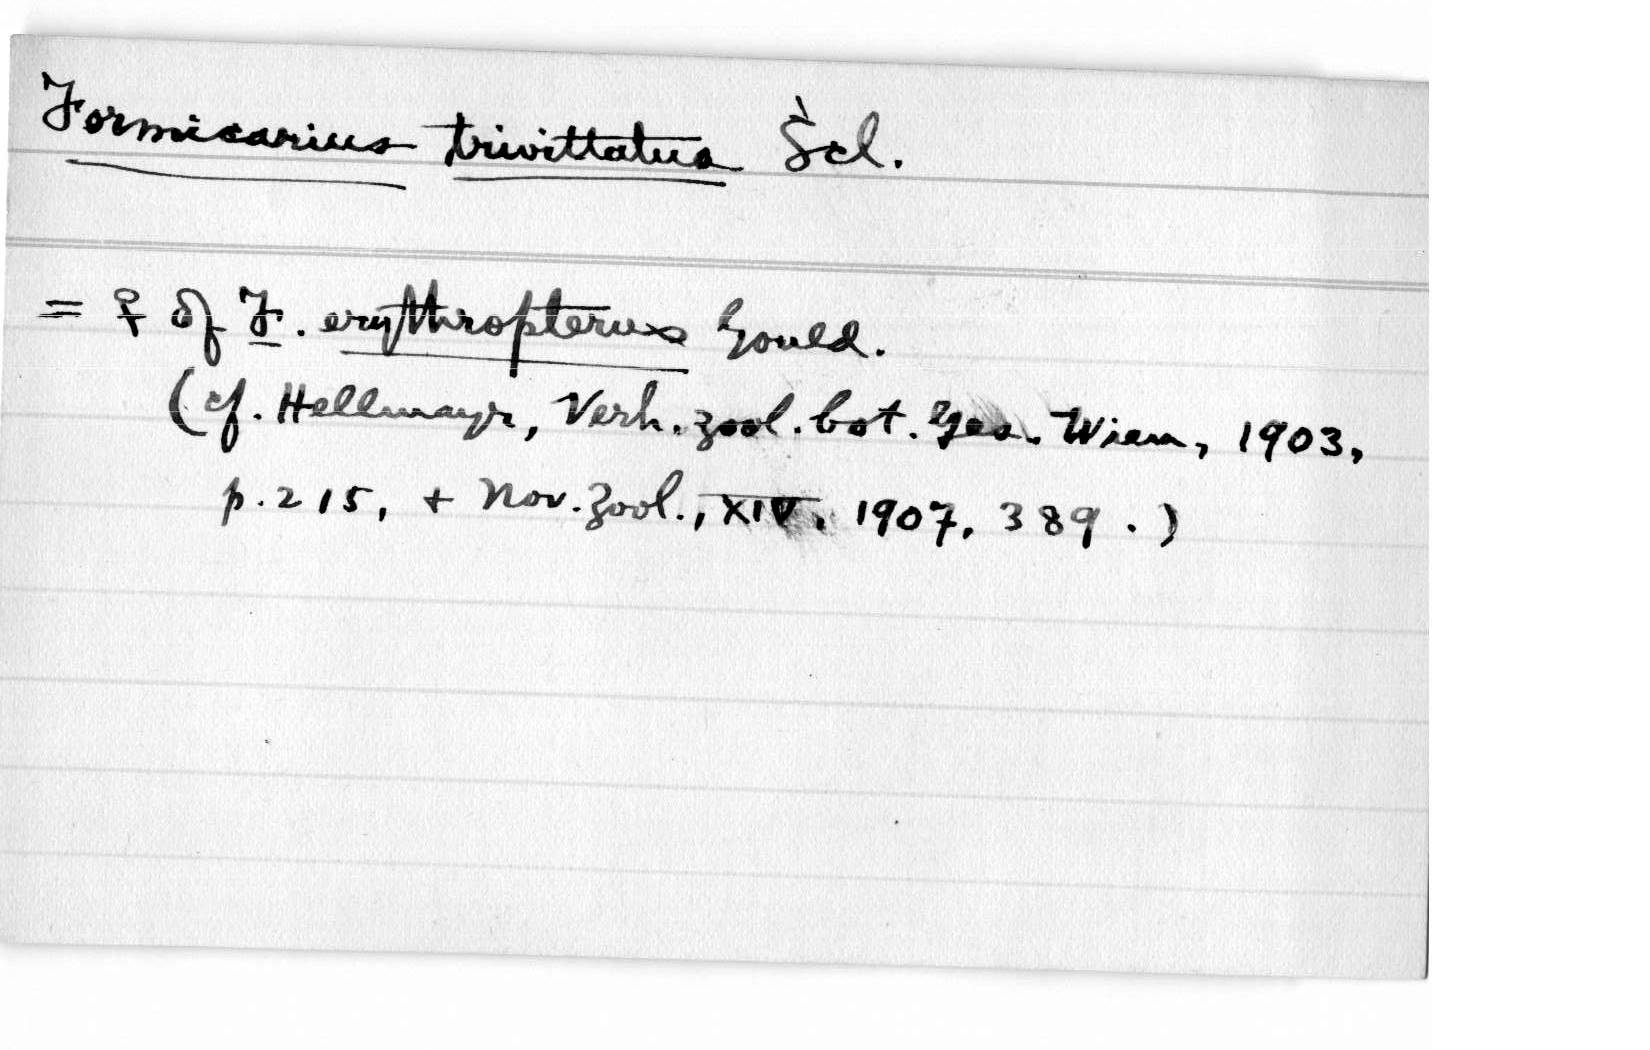 Formicarius trivittatus Scl.
= ♀ of F. erythropterus Gould.
(cf. Hellmayr, Verh. zool. bot. Ges. Wien, 1903,
p. 215, + Nov. Zool., XIV, 1907, 389.)